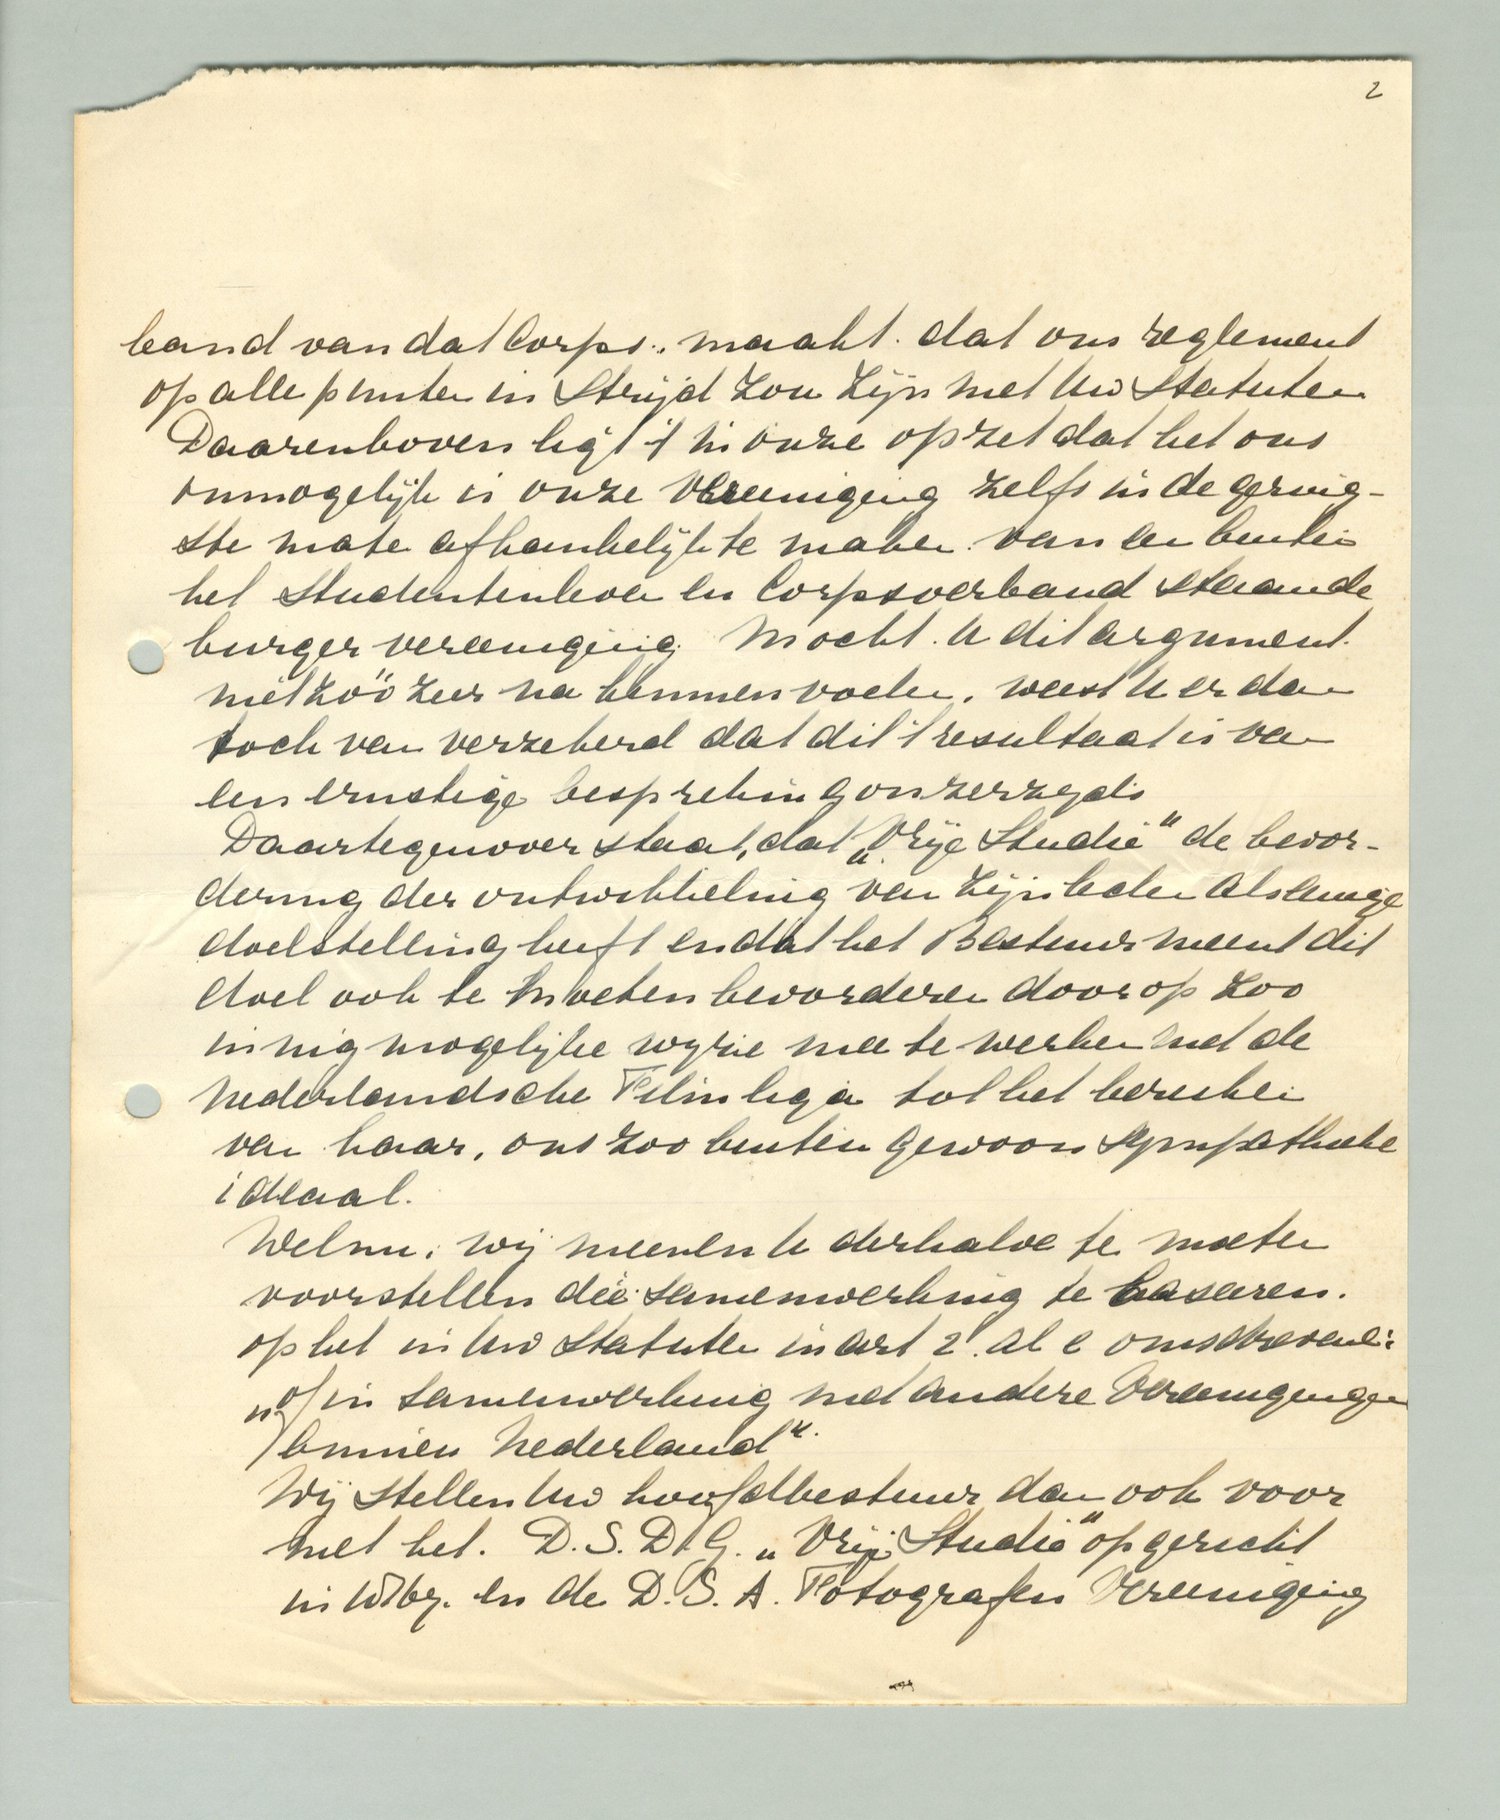 2
band van dat Corps., maakt. dat ons reglement
op alle punten in Strijd zou zijn met Uw Statuten
Daarenboven ligt 't in onze opzet dat het ons
onmogelijk is onze Vereeniging zelfs in de gering-
ste mate afhankelijk te maken van een buiten
het Studentenleven en Corpsverband staande
burger vereeniging. Mocht U dit argument.
niet zoo zeer na kunnen voelen, weest U er dan
toch van verzekerd dat dit 't resultaat is van
een ernstige bespreking onzerzyds
Daartegenover staat, dat „Vrije Studie" de bevor-
dering der ontwikkeling van zijn leden als eenige
doelstelling heeft en dat het Bestuur meent dit
doel ook te moeten bevorderen door op zoo
innig mogelijke wyze mee te werken met de
Nederlandsche Filmliga tot het bereiken
van haar, ons zoo buiten gewoon sympathieke
ideaal.
Welnu, wij meenen U derhalve te moeten
voorstellen die samenwerking te baseeren.
op het in Uw Statuten in art 2. al e omschrevene:
„of in samenwerking met andere Vereenigingen
binnen Nederland".
Wij stellen Uw hoofdbestuur dan ook voor
met het. D.S.D.G. „Vrije Studie" opgericht
in en de D.S.A. Fotografen Vereeniging